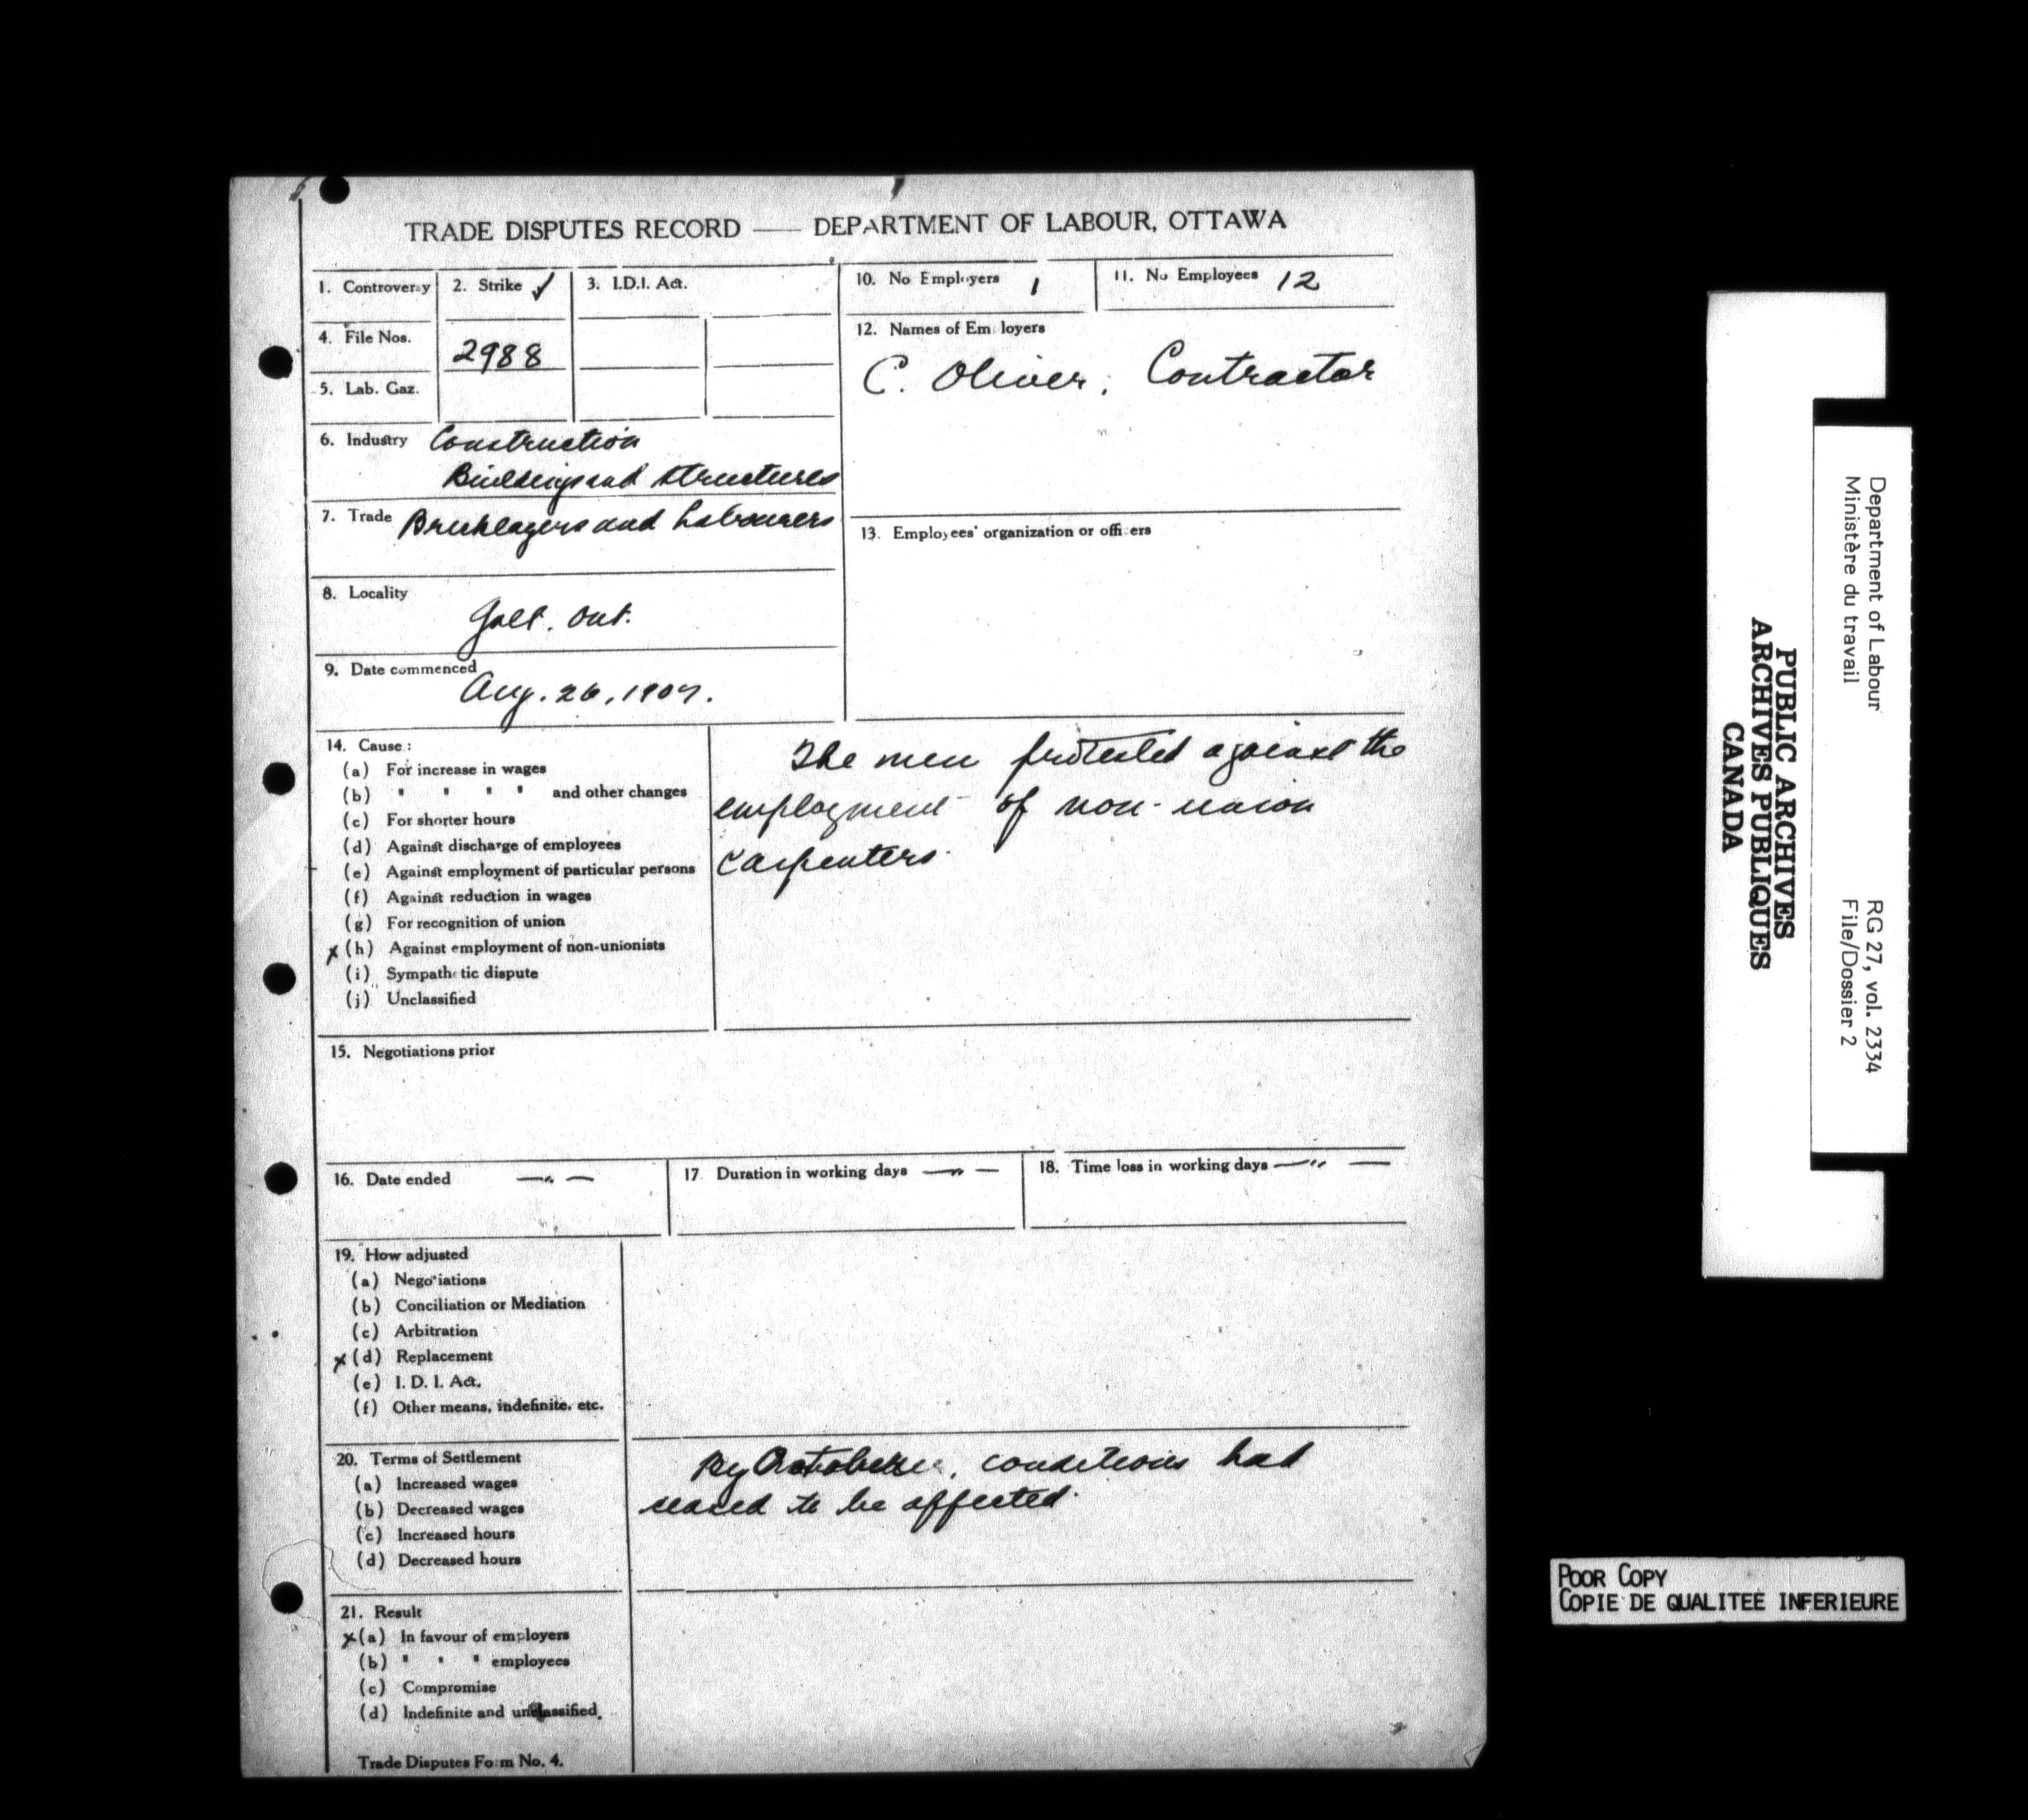 TRADE DISPUTES RECORD —— DEPARTMENT OF LABOUR, OTTAWA
1. Controversy
2. Strike ✓
3. I.D.I. Act.
4. File Nos. 2988
5. Lab. Gaz.
6. Industry Construction
Buildings and structures
7. Trade Bricklayers and Labourers
8. Locality
Galt. Ont.
9. Date commenced
Aug. 26, 1907.
10. No Employers 1
11. No Employees 12
12. Names of Employers
C. Oliver, Contractor
13. Employees' organization or officers
14. Cause:
(a) For increase in wages
(b) " " " " and other changes
(c) For shorter hours
(d) Against discharge of employees
(e) Against employment of particular persons
(f) Against reduction in wages
(g) For recognition of union
x (h) Against employment of non-unionists
(i) Sympathetic dispute
(j) Unclassified
The men protested against the
employment of non-union
carpenters.
15. Negotiations prior
16. Date ended —"—
17 Duration in working days —"—
18. Time loss in working days —"—
19. How adjusted
(a) Negotiations
(b) Conciliation or Mediation
(c) Arbitration
x (d) Replacement
(e) I. D. I. Act.
(f) Other means, indefinite, etc.
20. Terms of Settlement
(a) Increased wages
(b) Decreased wages
(c) Increased hours
(d) Decreased hours
By October, conditions had
ceased to be affected.
21. Result
x (a) In favour of employers
(b) " " " employees
(c) Compromise
(d) Indefinite and unclassified.
Trade Disputes Form No. 4.
Department of Labour
Ministère du travail
RG 27, vol. 2334
File/Dossier 2
PUBLIC ARCHIVES
ARCHIVES PUBLIQUES
CANADA
POOR COPY
COPIE DE QUALITEE INFERIEURE